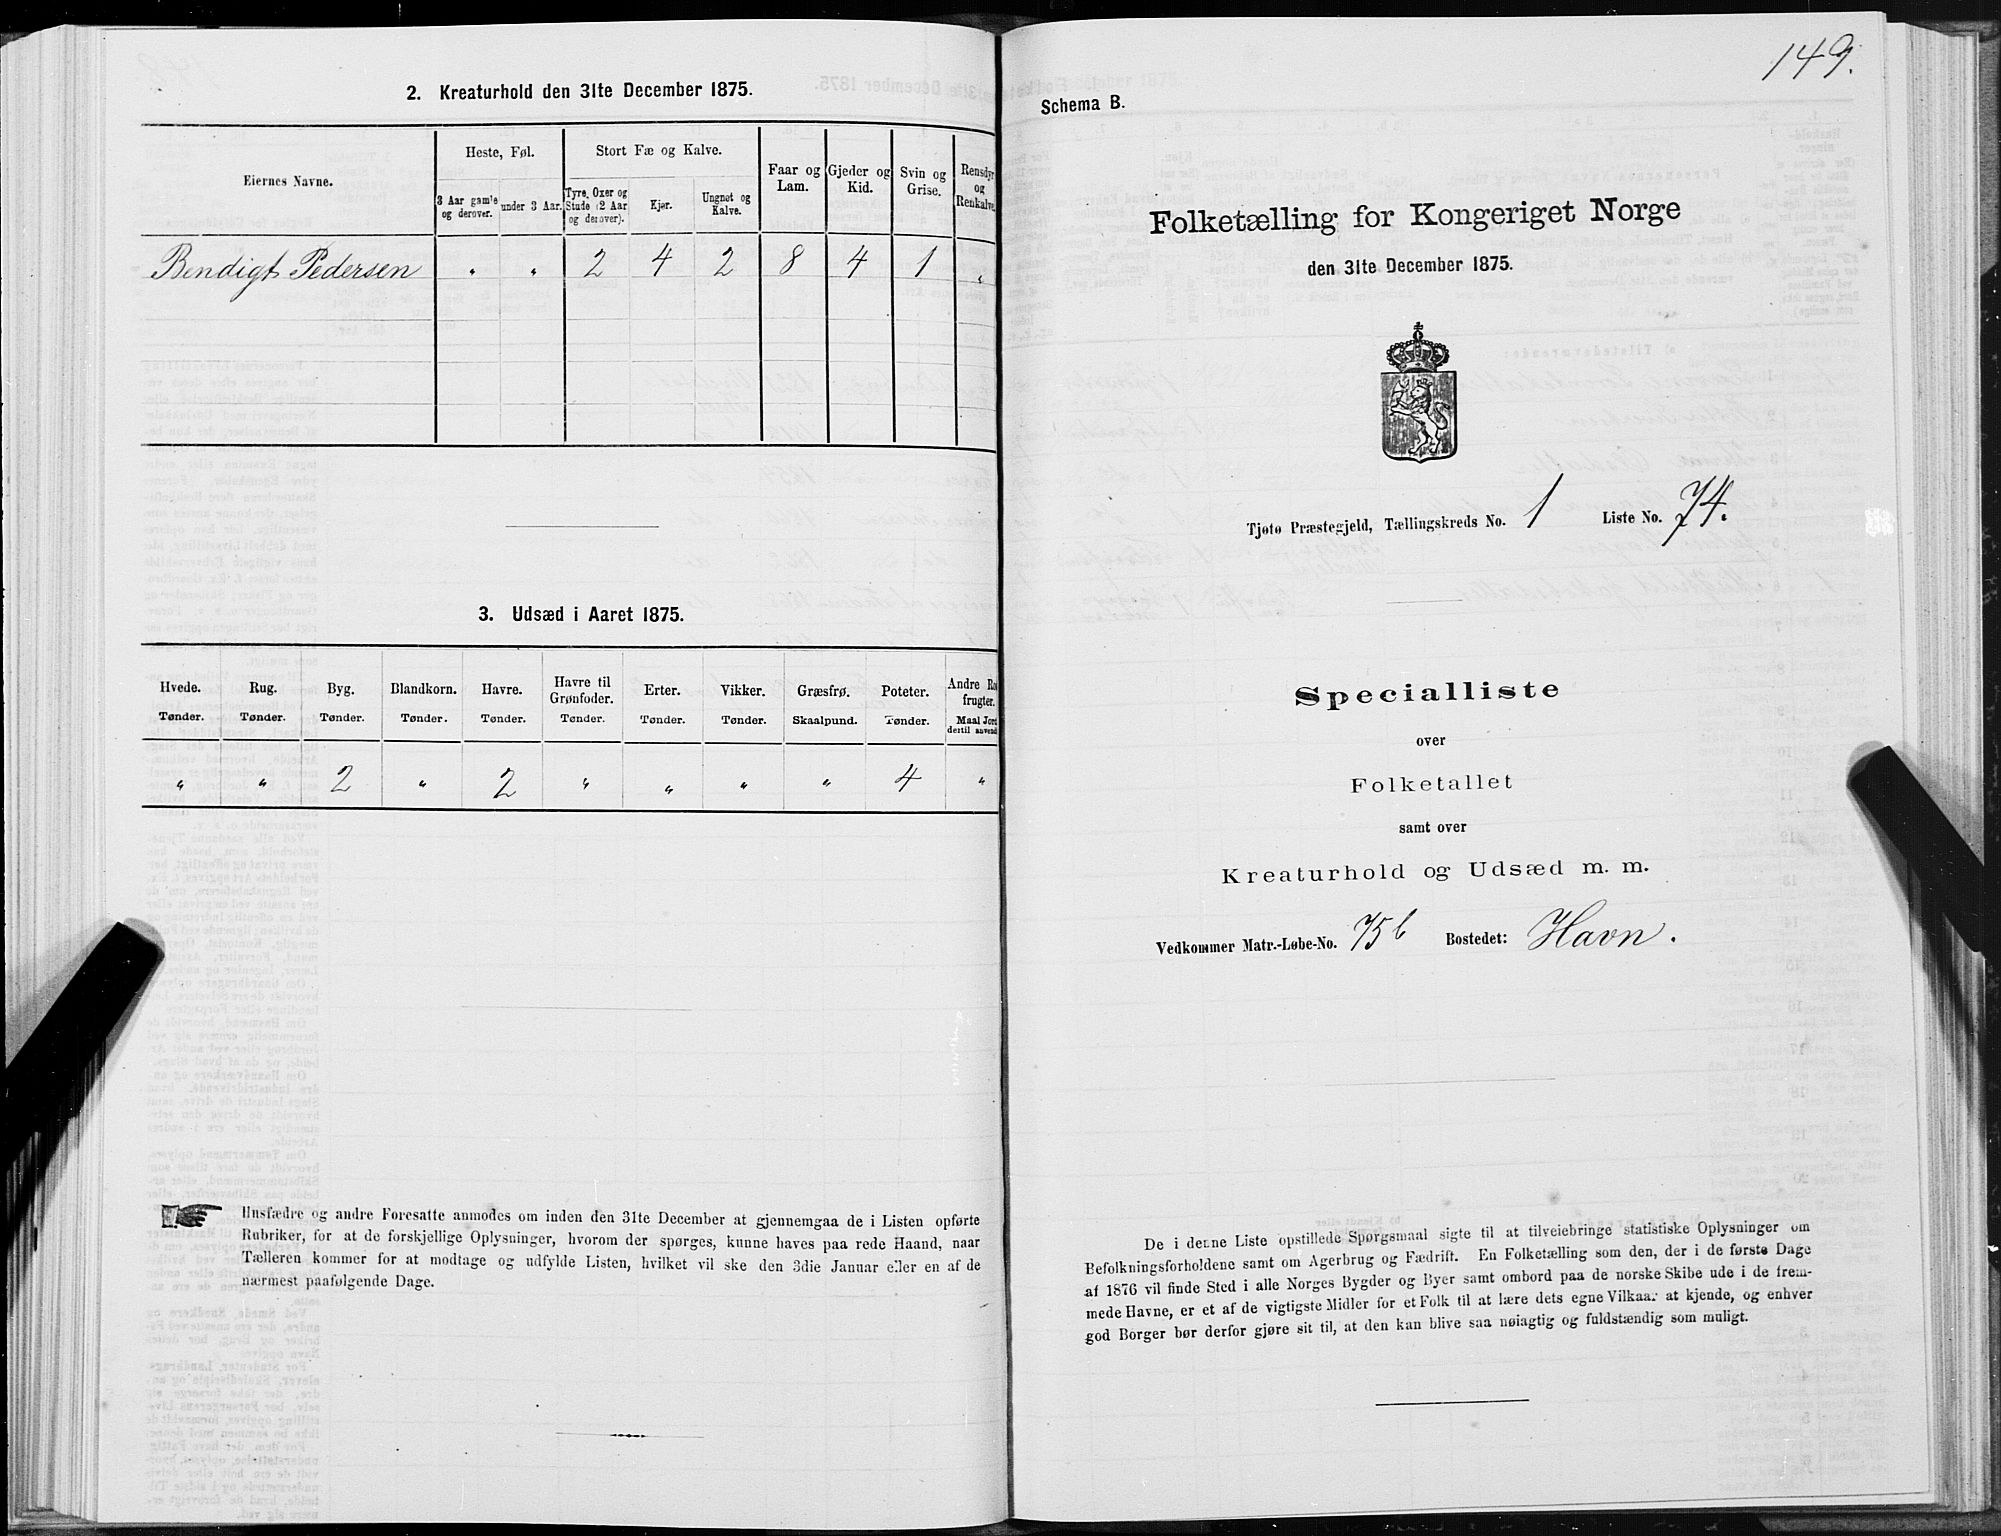 2. Kreaturhold den 31te December 1875.
Eiernes Navne.
Heste, Føl.
Stort Fæ og Kalve.
Faar og Lam.
Gjeder og Kid.
Svin og Grise.
Rensdyr og Renkalve.
3 Aar gamle og derover.
under 3 Aar.
Tyre, Oxer og Stude (2 Aar og derover).
Kjør.
Ungnøt og Kalve.
Bendigt Pedersen " " 2 4 2 8 4 1 "
3. Udsæd i Aaret 1875.
Hvede. Rug. Byg. Blandkorn. Havre. Havre til Grønfoder. Erter. Vikker. Græsfrø. Poteter. Andre frugter.
Tønder. Tønder. Tønder. Tønder. Tønder. Tønder. Tønder. Tønder. Skaalpund. Tønder. Maal Jord dertil anvend
" " 2 " 2 " " " " 4 "
Husfædre og andre Foresatte anmodes om inden den 31te December at gjennemgaa de i Listen opførte
Rubriker, for at de forskjellige Oplysninger, hvorom der spørges, kunne haves paa rede Haand, naar
Tælleren kommer for at modtage og udfylde Listen, hvilket vil ske den 3die Januar eller en af de
nærmest paafølgende Dage.
149.
Schema B.
Folketælling for Kongeriget Norge
den 31te December 1875.
Tjøtø Præstegjeld, Tællingskreds No. 1 Liste No. 74.
Specialliste
over
Folketallet
samt over
Kreaturhold og Udsæd m. m.
Vedkommer Matr.-Løbe-No. 75b Bostedet: Havn.
De i denne Liste opstillede Spørgsmaal sigte til at tilveiebringe statistiske Oplysninger om
Befolkningsforholdene samt om Agerbrug og Fædrift. En Folketælling som den, der i de første Dage
af 1876 vil finde Sted i alle Norges Bygder og Byer samt ombord paa de norske Skibe ude i de frem-
mede Havne, er et af de vigtigste Midler for et Folk til at lære dets egne Vilkaar at kjende, og enhver
god Borger bør derfor gjøre sit til, at den kan blive saa nøiagtig og fuldstændig som muligt.